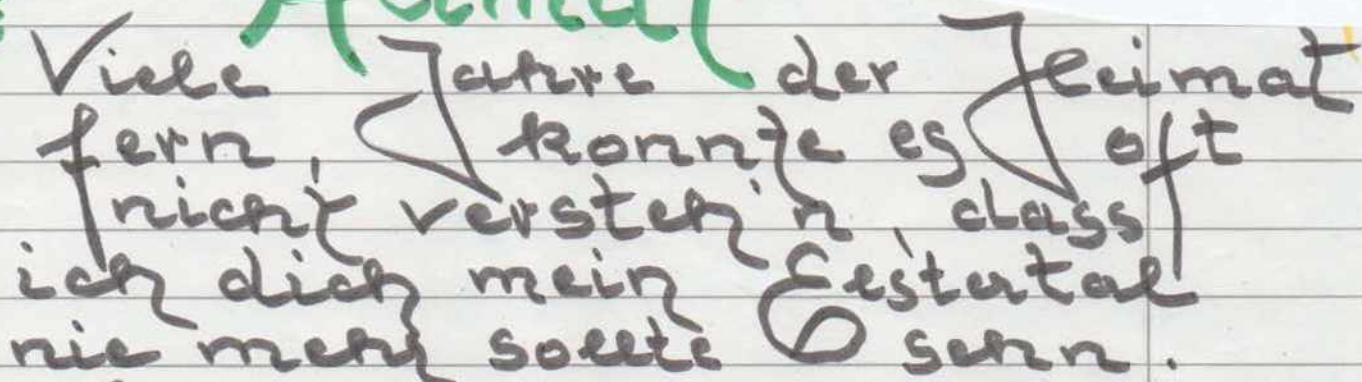 Heimat
Viele Jahre der Heimat
fern, konnte es oft
nicht versteh'n, dass
ich dich mein Elstertal
nie mehr sollte sehn.